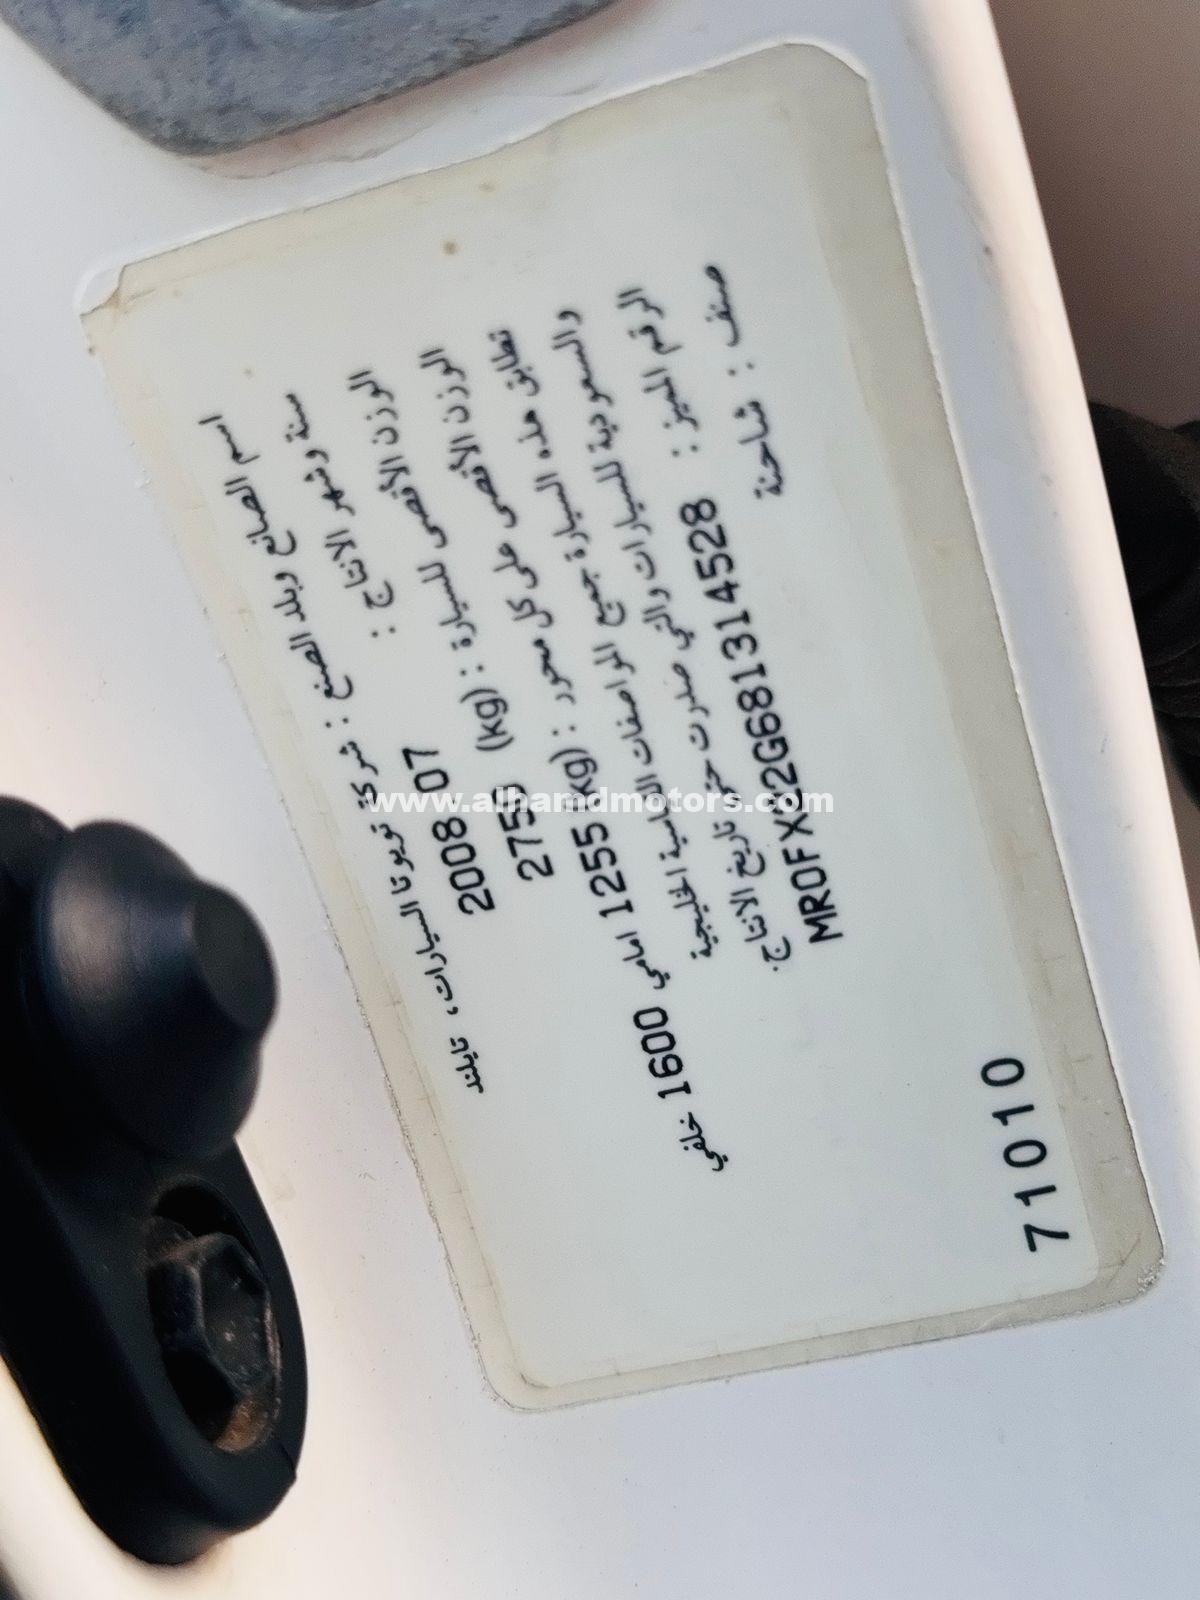 اسم الصانع وبلد الصنع : شركة تويوتا السيارات، تايلند
سنة وشهر الانتاج : 2008 07
الوزن الأقصى للسيارة : (kg) 2750
الوزن الأقصى على كل محور : (kg) 1255 امامي 1600 خلفي
تطابق هذه السيارة جميع المواصفات القياسية الخليجية
والسعودية للسيارات والتي صدرت حتى تاريخ الانتاج:
الرقم المميز : MR0FX22G681314528
صنف : شاحنة
71010
www.alhamdmotors.com